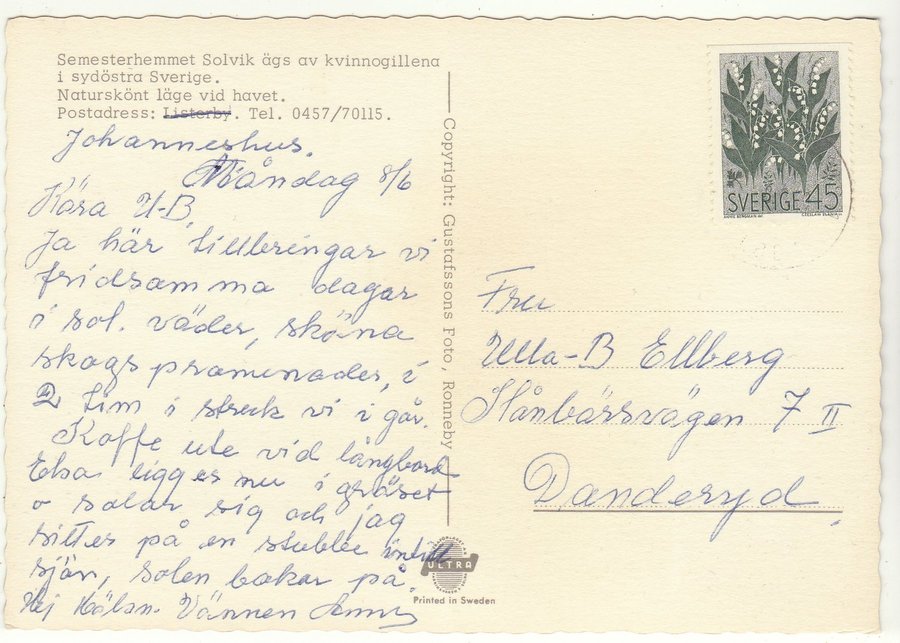 Semesterhemmet Solvik ägs av kvinnogillena
i sydöstra Sverige.
Naturskönt läge vid havet.
Postadress: Listerby. Tel. 0457/70115.
Johannishus.
Måndag 8/6
Kära U-B.
Ja här tillbringar vi
fridsamma dagar
i sol. väder, sköna
skogspromenader, i
2 tim i streck vi i går.
Kaffe ute vid långbord
Elsa ligger nu i gräset
o solar sig och jag
sitter på en stubbe intill
sjön, solen bakar på.
Hej Hälsn. Vännen
Copyright: Gustafssons Foto, Ronneby
ULTRA
Printed in Sweden
SVERIGE 45
Fru
Ulla-B Ellberg
Slånbärsvägen 7 II
Danderyd